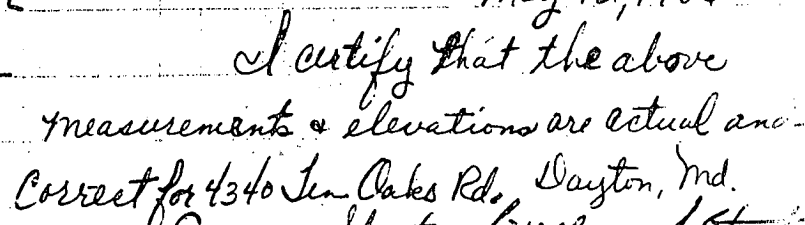 I certify that the above
measurements & elevations are actual and
correct for 4340 Ten Oaks Rd. Dayton, Md.